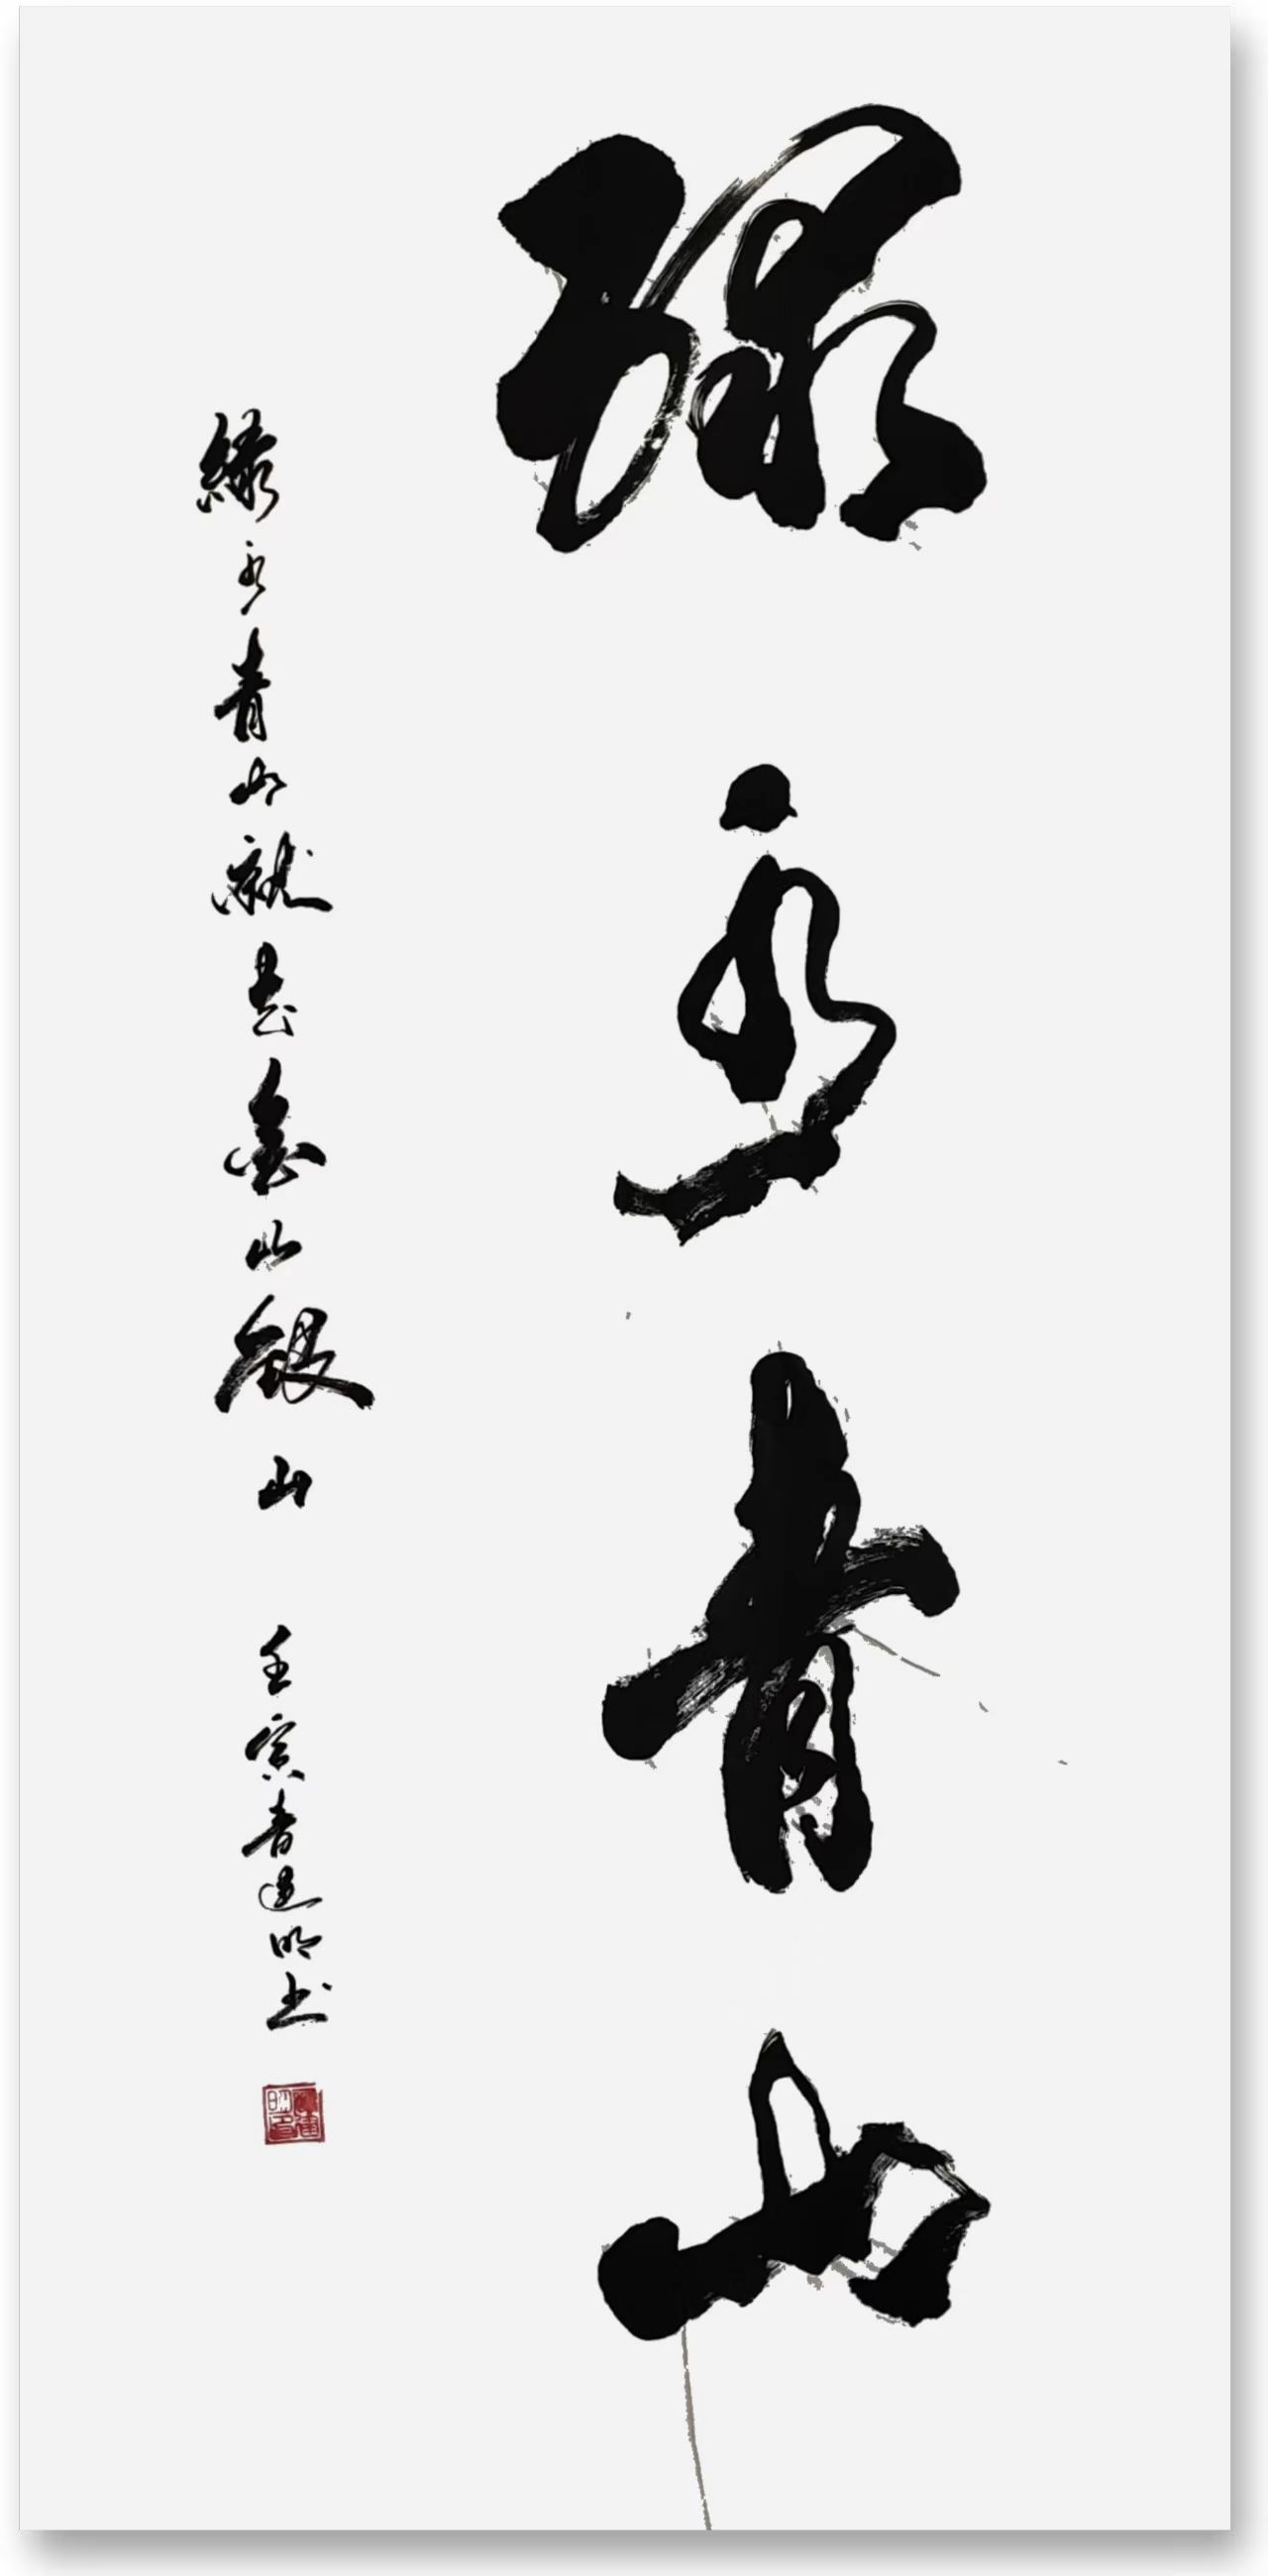 绿水青山
绿水青山就是金山银山 壬寅春建明书